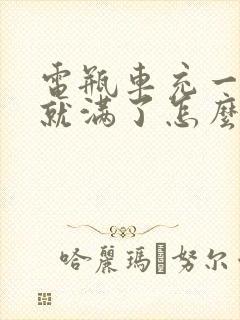 電瓶車充一
就滿了怎麼
哈麗瑪�努尔